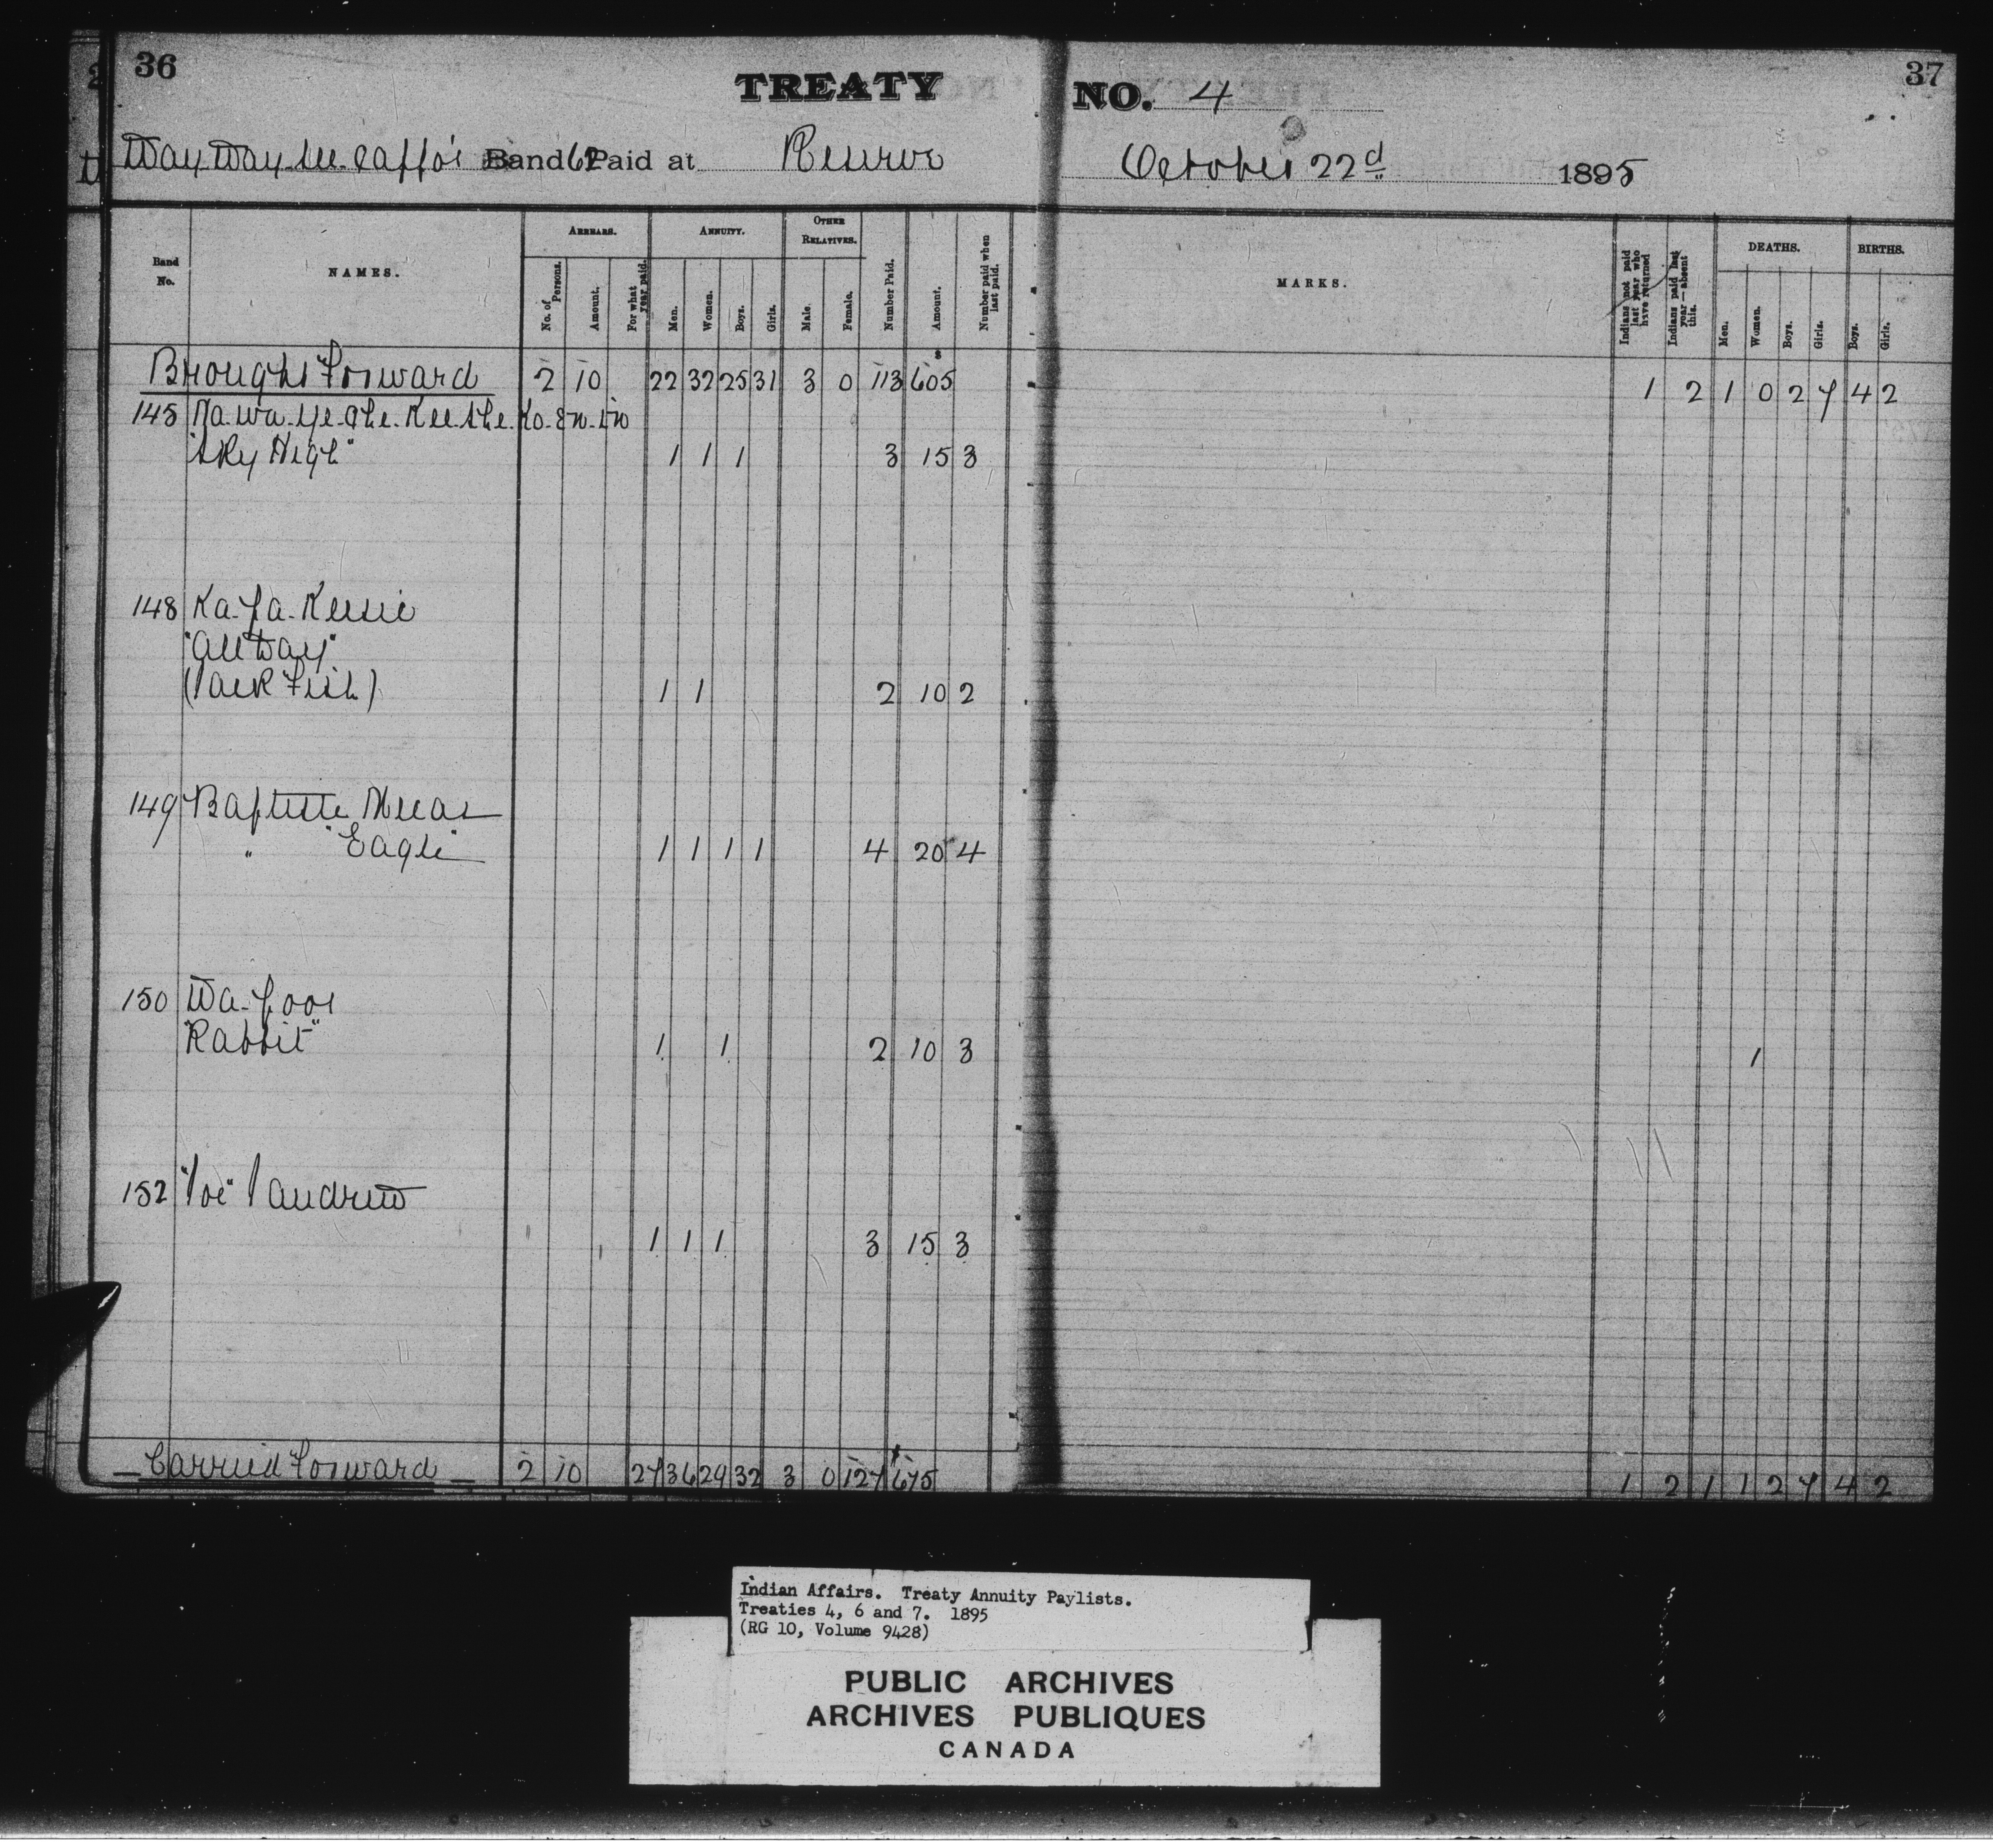 36
37
TREATY NO. 4
Way Way see cappo's Band 62 Paid at Reserve October 22d 1895
Band No. NAMES. ARREARS. ANNUITY. OTHER RELATIVES. Number Paid. Amount. Number paid when last paid. MARKS. Indians not paid last year who have returned Indians paid last year—absent this. DEATHS. BIRTHS.
No. of Persons. Amount. For what year paid. Men. Women. Boys. Girls. Male. Female. Men. Women. Boys. Girls. Boys. Girls.
Brought Forward 2 10 22 32 25 31 3 0 113 605 1 2 1 0 2 7 4 2
145 Ka.wa.ye.che.Kee.she.Ko.en.in
"Sky High" 1 1 1 3 15 3
148 Ka-pa-Keesic
"All Day"
(Jack Fish) 1 1 2 10 2
149 Baptiste
" "Eagle" 1 1 1 1 4 20 4
150 Wa-poos
"Rabbit" 1 1 2 10 3 1
152 "Joe" Jandrew
1 1 1 3 15 3
Carried Forward 2 10 27 36 29 32 3 0 127 675 1 2 1 1 2 7 4 2
Indian Affairs. Treaty Annuity Paylists.
Treaties 4, 6 and 7. 1895
(RG 10, Volume 9428)
PUBLIC ARCHIVES
ARCHIVES PUBLIQUES
CANADA